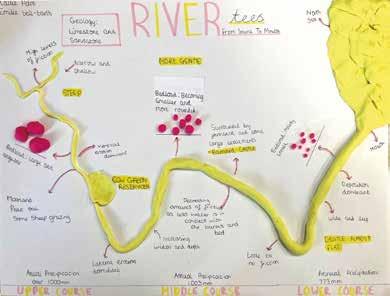 RIVER tees
From Source To Mouth
Geology:
Limestone and
Sandstone
High levels
of friction
Narrow and
shallow
STEEP
Bedload: large and
angular
vertical
erosion
dominant
Moorland
Some sheep grazing
COW GREEN
RESERVOIR
Lateral erosion
dominates
MORE GENTLE
Bedload: Becoming
smaller and
more rounded
Surrounded by
farmland and some
large settlements
- Barnard Castle
Decreasing
amounts of friction
as less water is in
contact with
the banks and
bed
Increasing
width and depth
North
Sea
Bedload: mainly
Mouth
Deposition
dominant
Wide and deep
GENTLE, ALMOST
FLAT
Little to
no friction
Annual Precipitation
over 1000mm
Annual Precipitation
1003mm
Annual Precipitation
773mm
UPPER COURSE
MIDDLE COURSE
LOWER COURSE